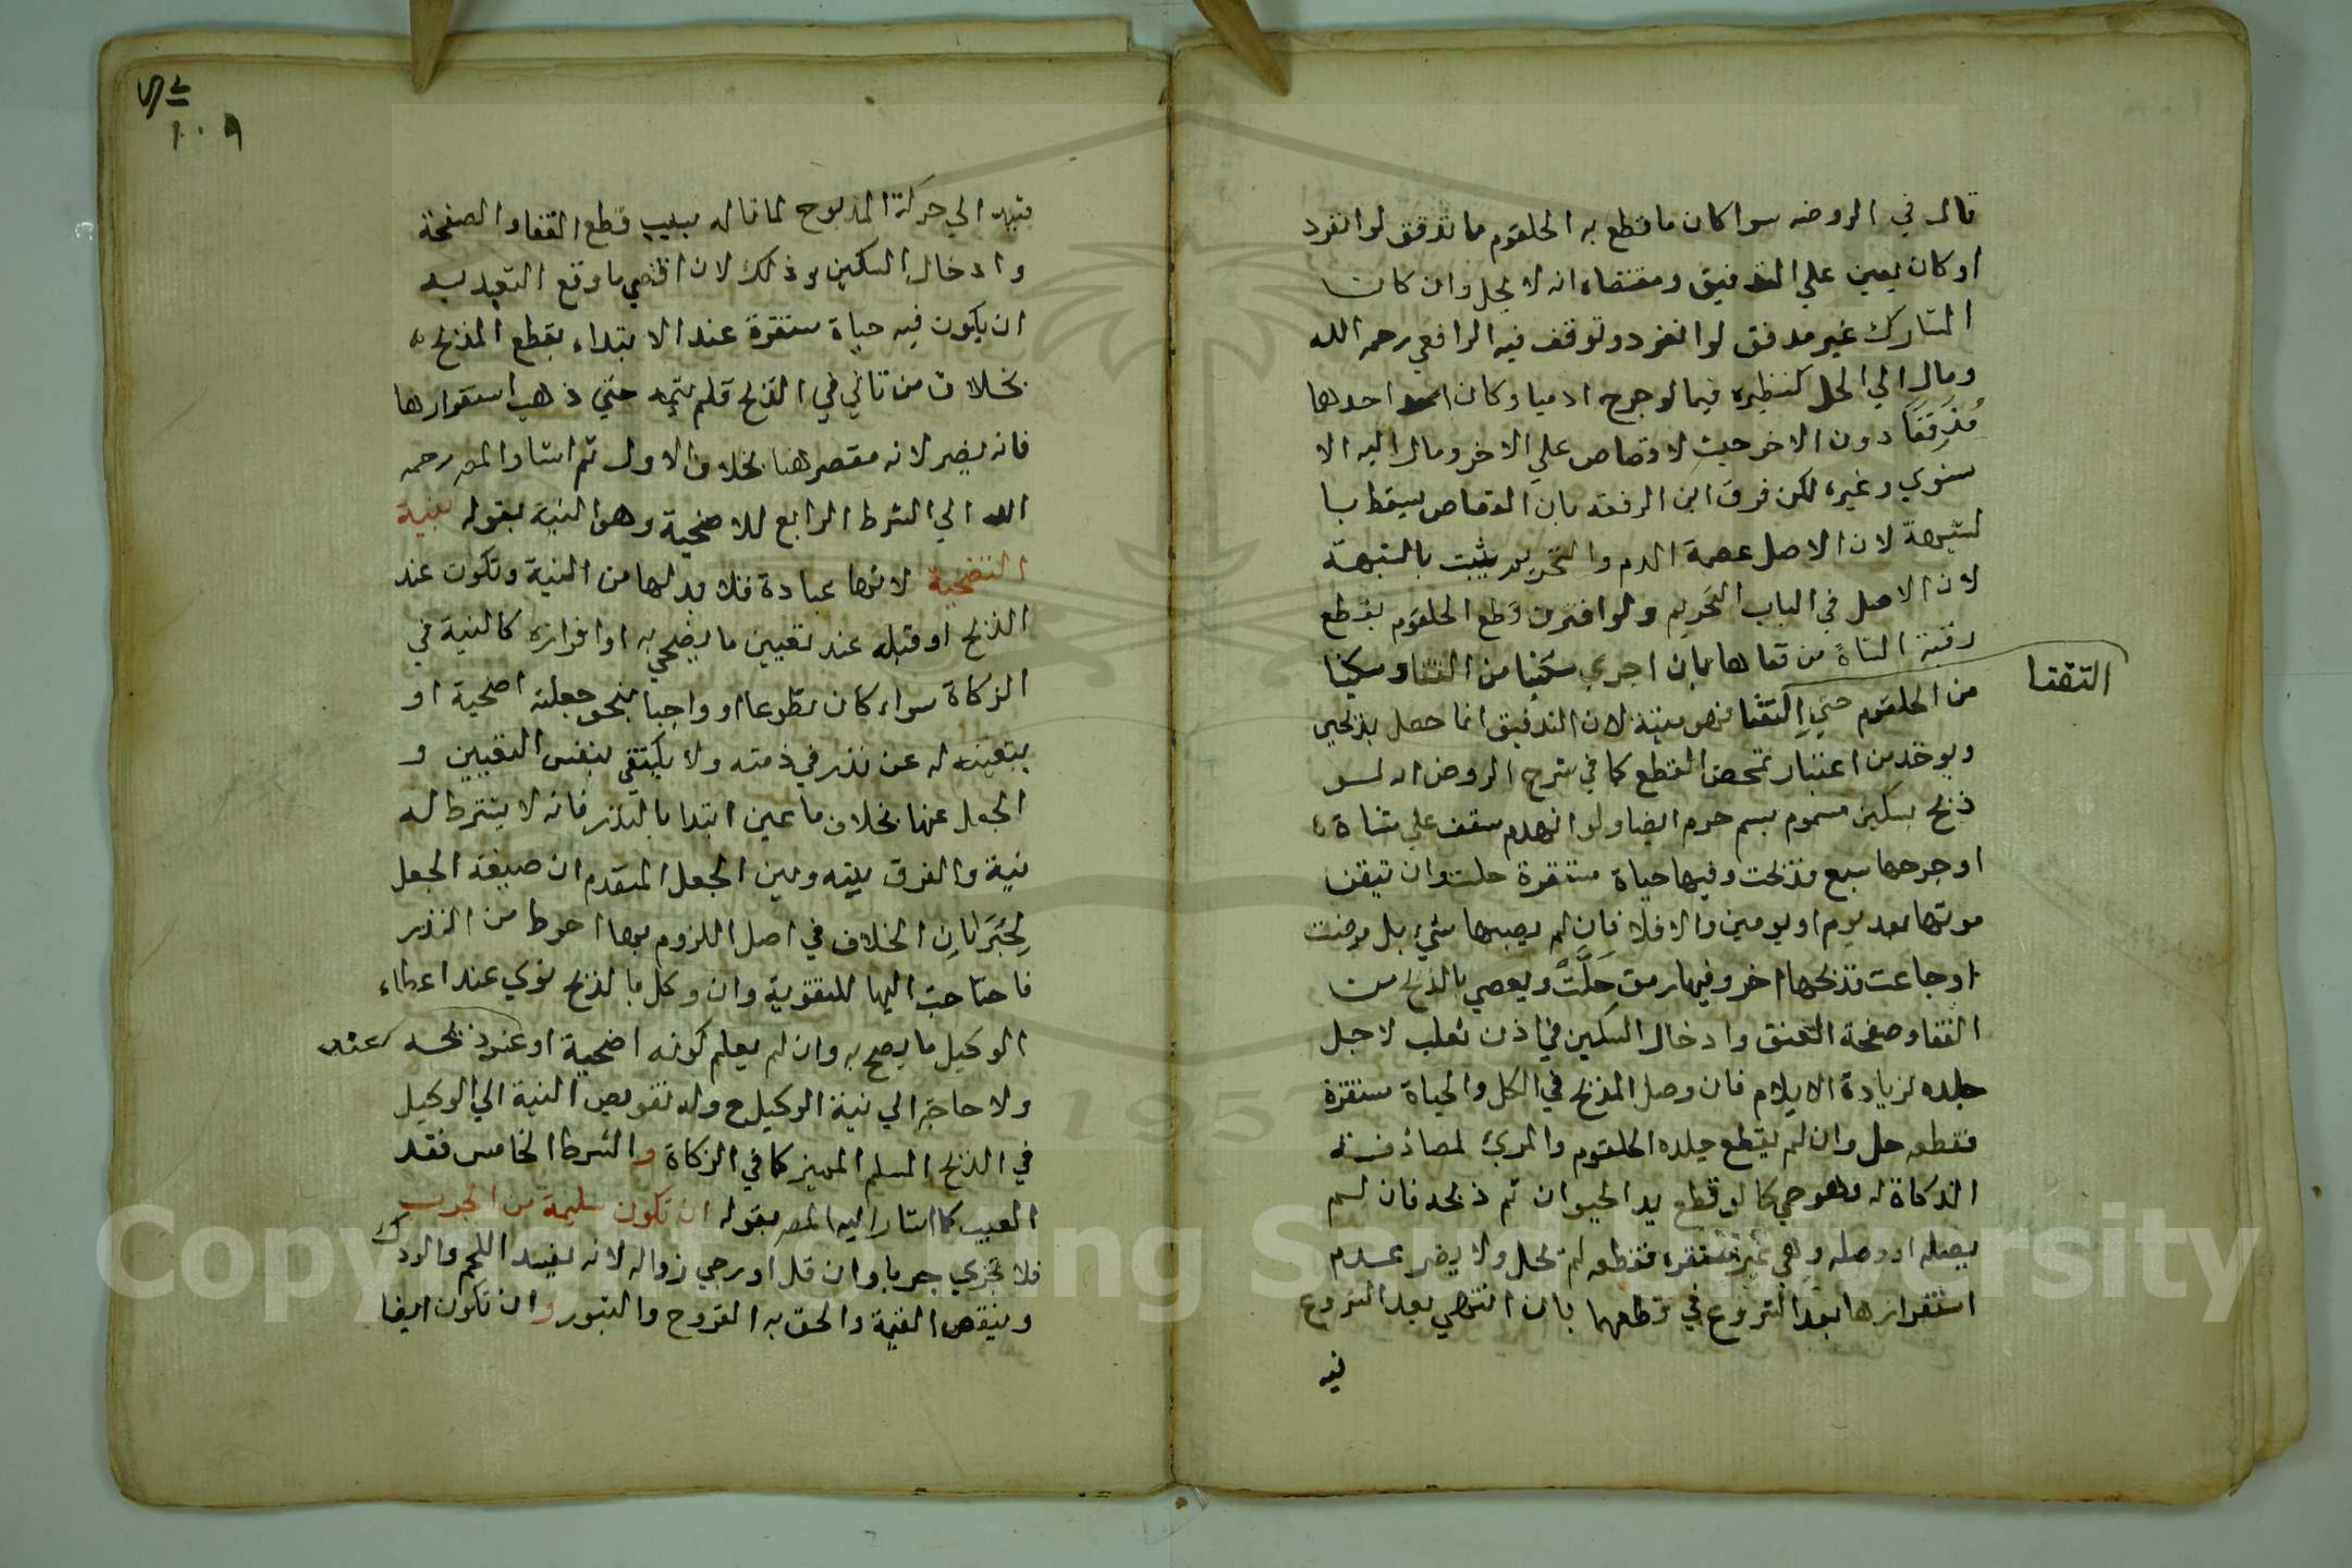 قال في الروضه سوا كان ما قطع به الحلقوم ما تدفق لو انفرد
او كان يعين علي التدفيق ومقتضاه انه لا يحل وان كان
المشارك غير مدفف لو انفرد وتوقف فيه الرافعي رحمه الله
ومال الي الحل كنظيره فيما لو جرح ادميا وكان احدها
مُذَفِّفًا دون الاخر حيث لا قصاص علي الاخر ومال اليه الا
سنوي وغيره لكن فرق ابن الرفعه بان القصاص يسقط با
لشبهة لان الاصل عصمة الدم والتحريم يثبت بالشبهة
لان الاصل في الباب التحريم ولو اقترن قطع الحلقوم بقطع
رقبة الشاة من قفاها بان اجري سكينا من القفا وسكينا
من الحلقوم حتي التقتا فهو ميتة لان التدفيق انما حصل بذبحين
التقتا
ويوخذ من اعتبار تمحض القطع كما في شرح الروض انه لو
ذبح بسكين مسموم بسم حرم ايضا ولو انهدم سقف علي شاة
او جرحها سبع فذبحت وفيها حياة مستقرة حلت وان تيقن
موتها بعد يوم او يومين والا فلا فان لم يصبها شيء بل مرضت
او جاعت فذبحها اخر وفيها رمق حَلَّتْ ويعصي بالذبح من
القفا وصفحة العنق وادخال السكين في اذن ثعلب لاجل
جلده لزيادة الايلام فان وصل المذبح في الكل والحياة مستقرة
فقطعه حل وان لم يقطع جلده الحلقوم والمريئ لمصادفته
الذكاة له وهو حي كما لو قطع يد الحيوان ثم ذبحه فان لم
يصله او وصله وهي غير مستقره فقطعه لم تحل ولا يضر عدم
استقرارها بعد الشروع في قطعهما بان انتهي بعد الشروع
فيه
١٠٩
فيهم الي حركة المذبوح لما ناله بسبب قطع القفا والصفحة
وادخال السكين وذلك لان اقصي ما وقع التعبد به
ان يكون فيه حياة مستقرة عند الابتداء بقطع المذبح
بخلاف من تاني في الذبح فلم يتمه حتي ذهب استقرارها
فانه يضر لانه مقصر هنا بخلاف الاول ثم اشار المص رحمه
الله الي الشرط الرابع للاضحية وهو النية بقوله بنية
التضحية لانها عبادة فلا بد لها من النية وتكون عند
الذبح او قبله عند تعيين ما يضحي به او افرازه كالنية في
الزكاة سواء كان تطوعا او واجبا بنحو جعلته اضحية او
بتعينه له عن نذر في ذمته ولا يكتفي بنفس التعيين و
الجعل عنها بخلاف ما عين ابتدا بالنذر فانه لا يشترط له
نية والفرق بينه وبين الجعل المتقدم ان صيغة الجعل
لجَرَيَانِ الخلاف في اصل اللزوم بها احوط من النذر
فاحتاجت اليها للتقوية وان وكل بالذبح نوي عند اعطاء
الوكيل ما يصح به وان لم يعلم كونه اضحية او عند ذبحه
عنه
ولا حاجة الي نية الوكيل ح وله تفويض النية الي الوكيل
في الذبح المسلم المميز كما في الزكاة والشرط الخامس فقد
العيب كما اشار اليه المص بقوله ان تكون سليمة من الجرب
فلا تجزي جربا وان قل او رجي زواله لانه يفسد اللحم والودك
وينقص القيمة والحق به القروح والبثور وان تكون ايضا
Copyright © King Saud University
1957